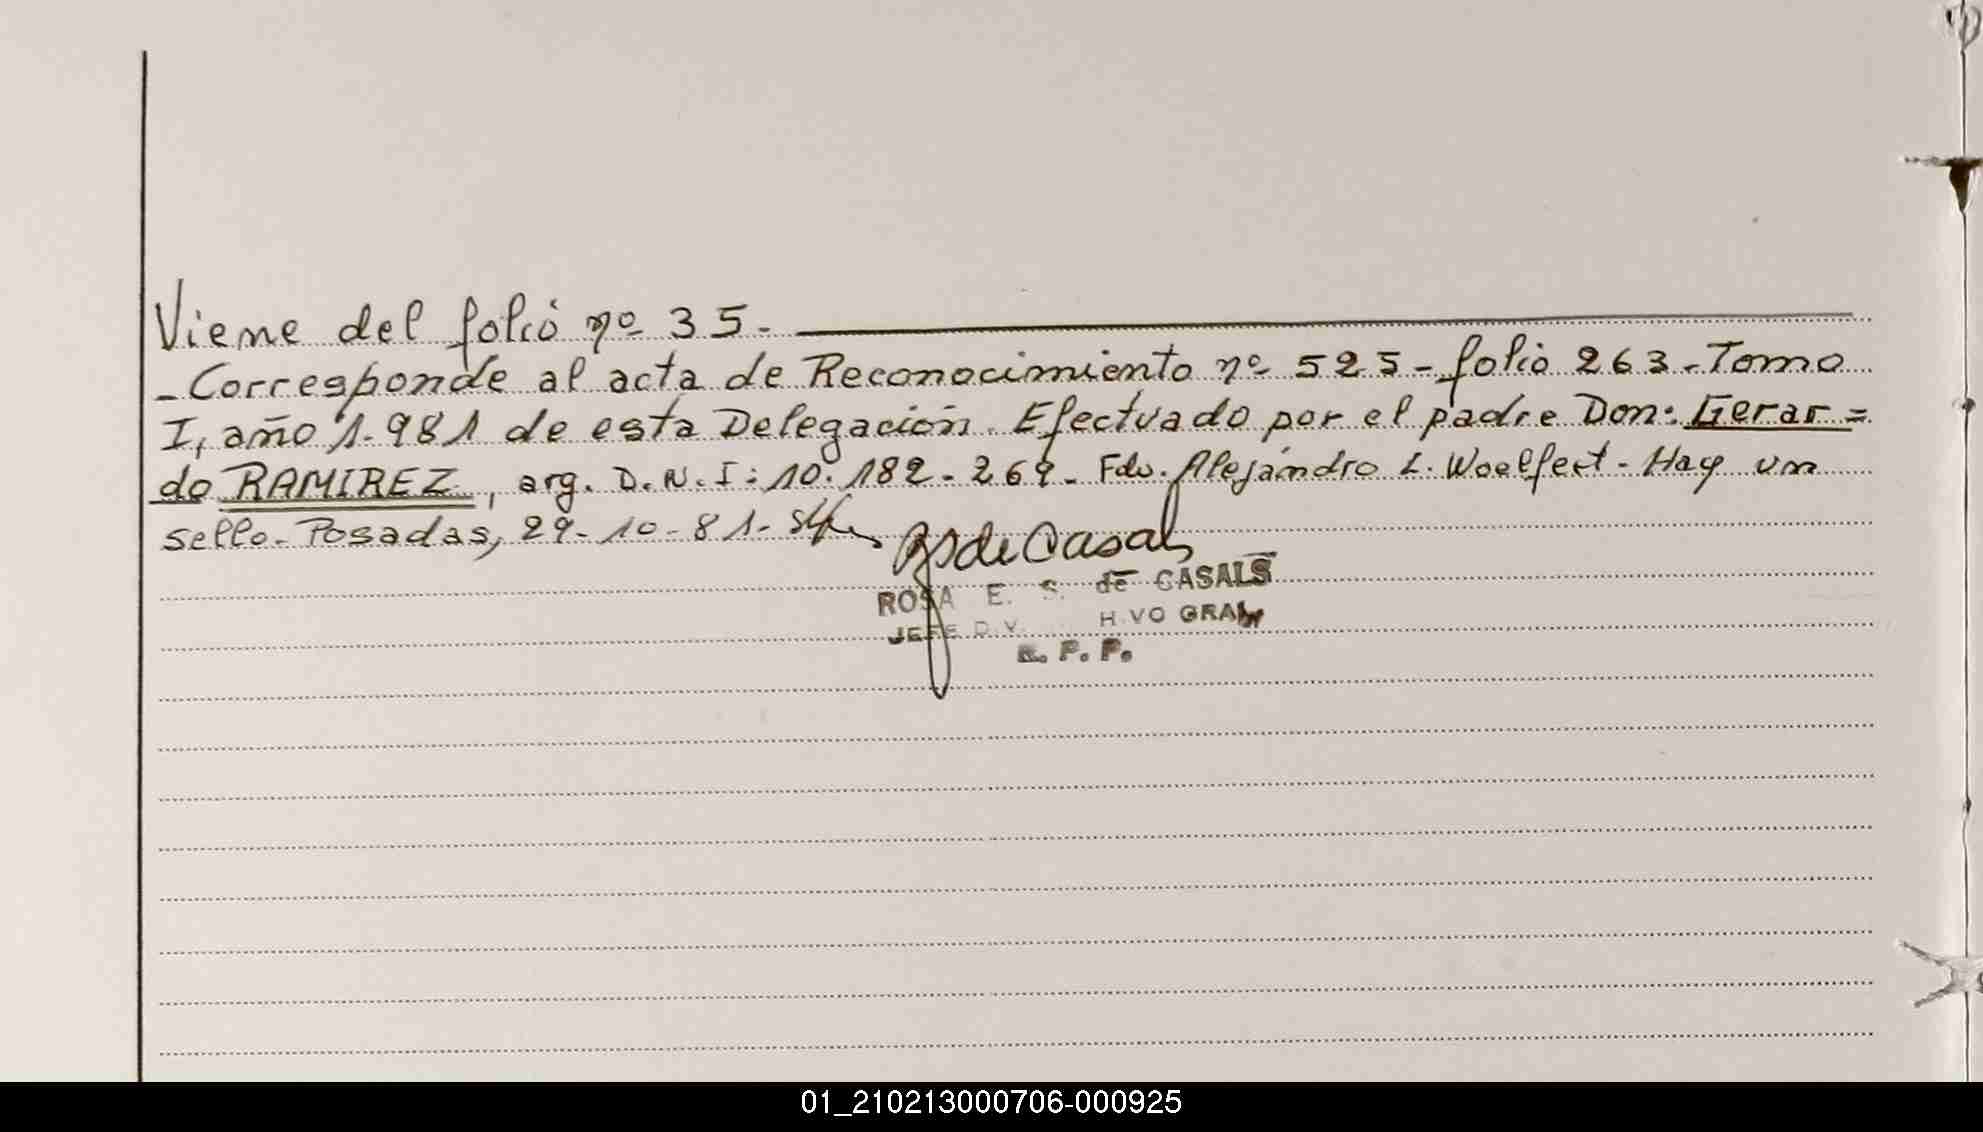 Viene del folio nº 35.-
- Corresponde al acta de Reconocimiento nº 525 - folio 263 - Tomo
I, año 1.981 de esta Delegación. Efectuado por el padre Don: Gerar=
do RAMIREZ, arg. D.N.I: 10.182.269 - Fdo. Alejandro L. Woelfert - Hay un
sello - Posadas, 29-10-81-
RS de Casals
ROSA E. S. de CASALS
JEFE DIV. H.VO GRAL
R. P. P.
01_210213000706-000925